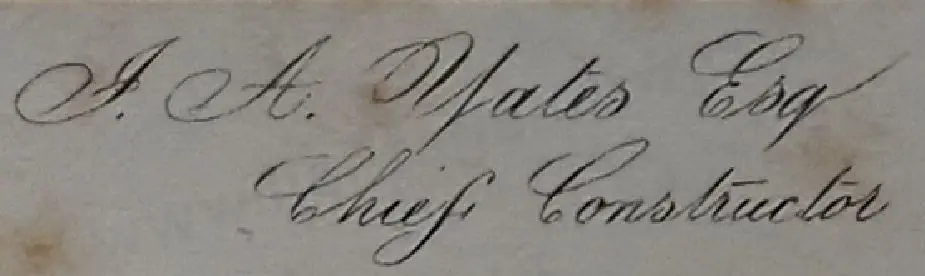 J. A. Yates Esq
Chief Constructor